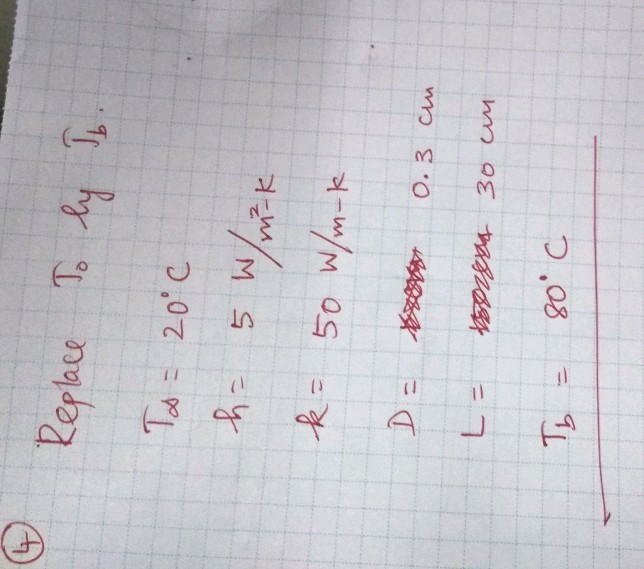 ④
Replace T₀ by T_b.
T∞ = 20°C
h = 5 W/m²-K
k = 50 W/m-K
D = 0.3 cm
L = 30 cm
T_b = 80°C